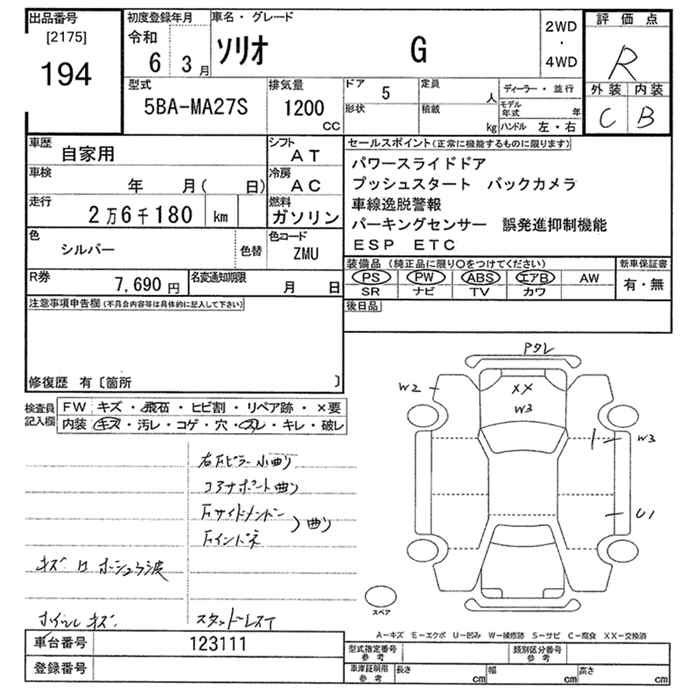 出品番号 初度登録年月 車名・グレード 2WD 評価点
[2175] 令和 ソリオ G ・ R
194 6 3月 4WD
型式 排気量 ドア 5 定員 人 ディーラー・並行 外装 内装
5BA-MA27S 1200 CC 形状 積載 kg モデル年式 年 C B
ハンドル 左・右
車歴 自家用 シフト AT セールスポイント(正常に機能するものに限ります)
車検 年 月( 日) 冷房 AC パワースライドドア
プッシュスタート バックカメラ
走行 2万6千180 km 燃料 ガソリン 車線逸脱警報
パーキングセンサー 誤発進抑制機能
色 シルバー 色替 色コード ZMU ESP ETC
R券 7,690円 名変通知期限 月 日 装備品(純正品に限り○をつけてください) 新車保証書
PS PW ABS エアB AW 有・無
SR ナビ TV カワ
注意事項申告欄(不具合内容等は具体的に記入して下さい) 後日品
修復歴 有〔箇所 〕
検査員記入欄 FW キズ・飛石・ヒビ割・リペア跡・×要
内装 キズ・汚レ・コゲ・穴・スレ・キレ・破レ
アタレ
W2 XX
W3 W3
U1
右Fピラー小曲り
コアサポート曲り
Fサイドメンバー
Fインパネ 〉曲り
キズ
ホイルキズ
スペア
A-キズ E-エクボ U-凹み W-補修跡 S-サビ C-腐食 XX-交換済
車台番号 123111 型式指定番号 参考 類別区分番号 参考
登録番号 車庫証明用 参考 長さ cm 幅 cm 高さ cm